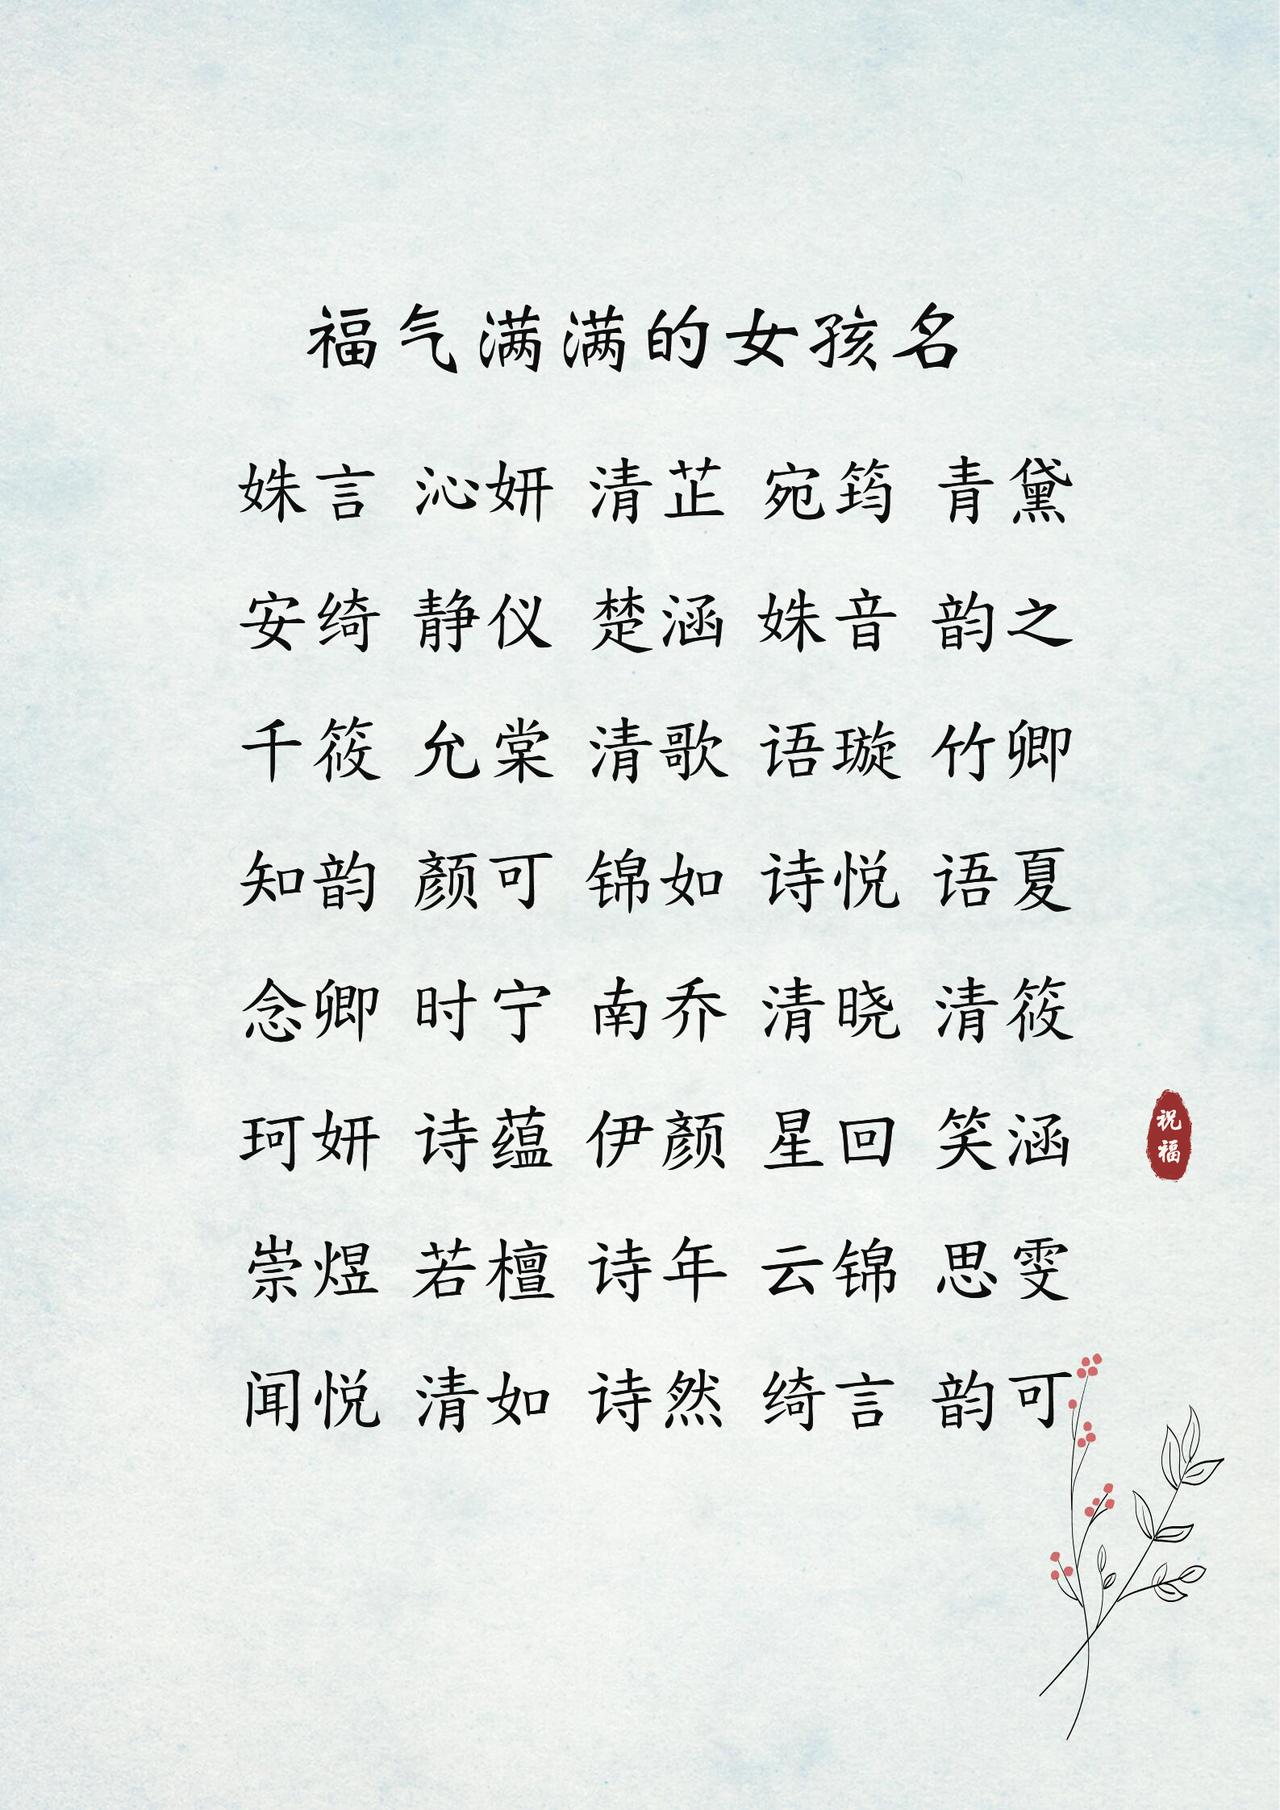 福气满满的女孩名
姝言 沁妍 清芷 宛筠 青黛
安绮 静仪 楚涵 姝音 韵之
千筱 允棠 清歌 语璇 竹卿
知韵 颜可 锦如 诗悦 语夏
念卿 时宁 南乔 清晓 清筱
珂妍 诗蕴 伊颜 星回 笑涵
崇煜 若檀 诗年 云锦 思雯
闻悦 清如 诗然 绮言 韵可
祝福